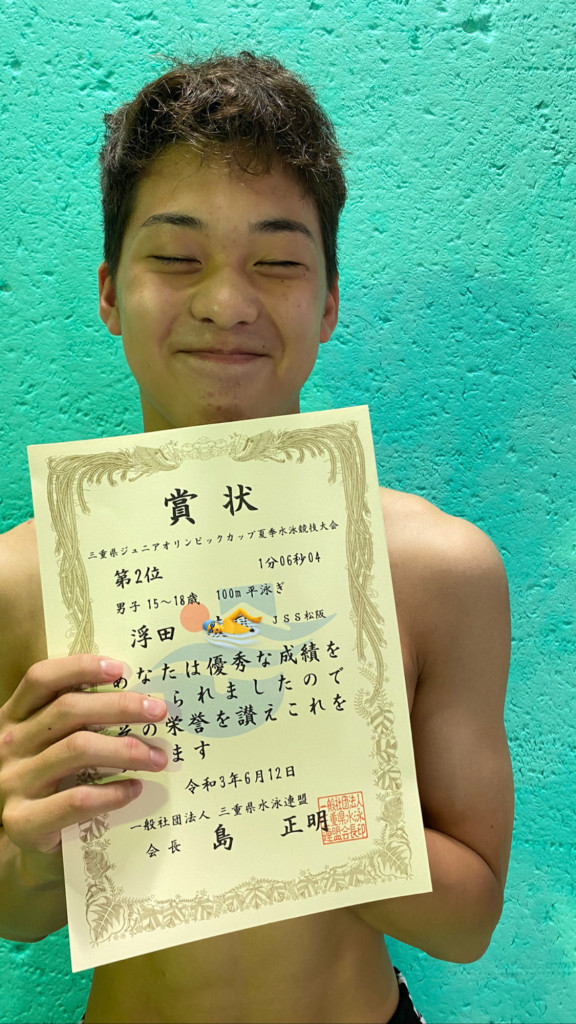 賞状
三重県ジュニアオリンピックカップ夏季水泳競技大会
第2位 1分06秒04
男子 15～18歳 100m 平泳ぎ
浮田 JSS松阪
あなたは優秀な成績を
られましたので
その栄誉を讃えこれを
ます
令和3年6月12日
一般社団法人 三重県水泳連盟
会長 島 正明
一般社団法人
三重県水泳
連盟会長印